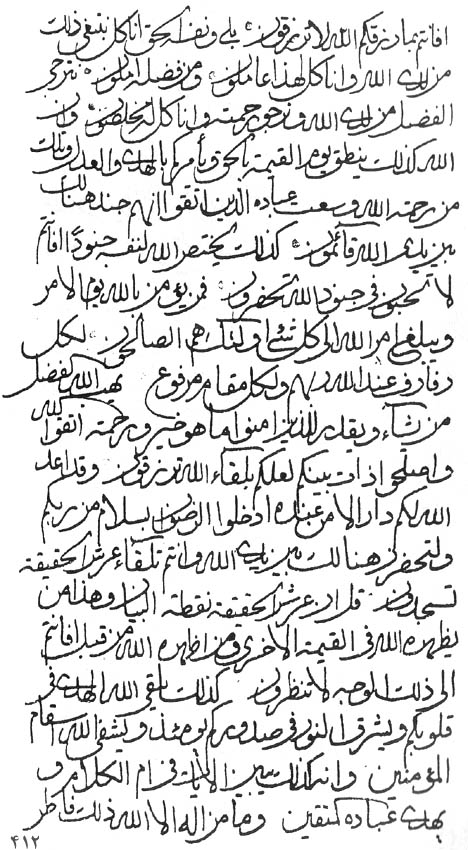 افانتم بما رزقكم الله لا ترزقون بلى ونفسه الحق انا كل نبتغي ذلك
من لدى الله وانا كل لهذا عاملون ومن فضله املون نرتجى
الفضل من لدى الله ونرجو رحمته وانا كل له مخلصون وان
الله كذلك ينطق يوم القيمة بالحق ويأمركم بالهدى والعدل وذلك
من رحمة الله وسعت عباده الذين اتقوا انهم جند هنالك
بين يدى الله قائمون كذلك يختص الله لنفسه جنودا افانتم
لا تحبون في جنود الله تحضرون فمن يؤمن بالله يوم الامر
ويبلغ امر الله الى كل شئ اولئك هم الصالحون لكل
رفارف عند الله ربهم ولكل مقام مرفوع يهب الله الفضل
من يشاء ويقدر للذين امنوا ما هو خير ورحمة اتقوا الله
واصلحوا ذات بينكم لعلكم بلقاء الله ترزقون وقد اعد
الله لكم دار الامن عنده ادخلوا الرضوان بسلام من ربكم
ولتحضرن هنالك بين يدى الله وانتم تلقاء عرش الحقيقة
تسجدون قل ان عرش الحقيقة نقطة البيان وهذا من
يظهره الله في القيمة الاخرى ومن اظهره الله من قبل افانتم
الى ذلك الوجه لا تنظرون كذلك يلقى الله الهدى في
قلوبكم ويشرق النور في صدوركم يومئذ ويشفى الله اسقام
المؤمنين وانه كذلك يبين الايات في ام الكلام و
يهدى عباده المتقين وما من اله الا الله ذلك فاطر
٤١٢